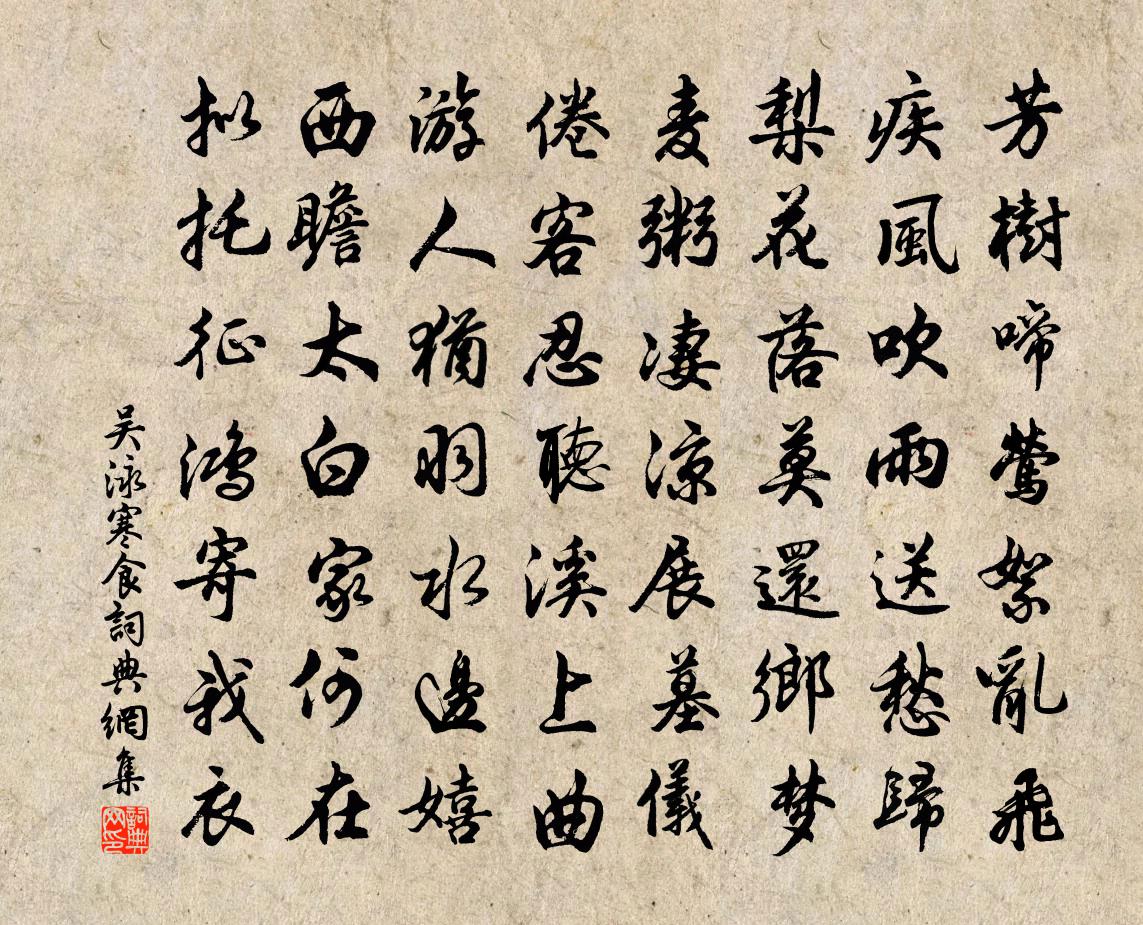 芳樹啼鶯絮亂飛
疾風吹雨送愁歸
梨花落莫還鄉梦
麦粥凄涼展墓儀
倦客忍聽溪上曲
游人猶明水邊嬉
西瞻太白家何在
拟托征鴻寄我衣
吴泳寒食詞典網集
詞典网印